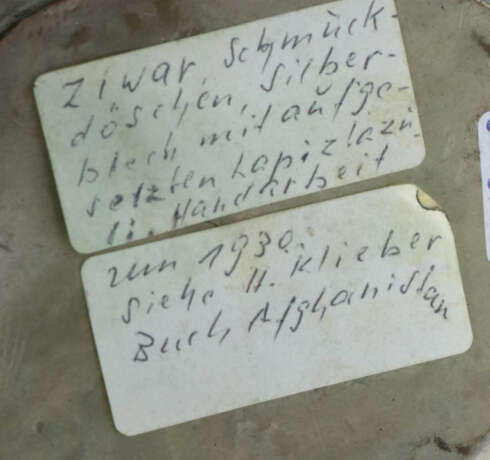 Ziwar, Schmück-
döschen, Silber-
blech mit aufge-
setzten Lapizlazu-
li. Handarbeit
um 1930.
Siehe H. Klieber
Buch Afghanistan